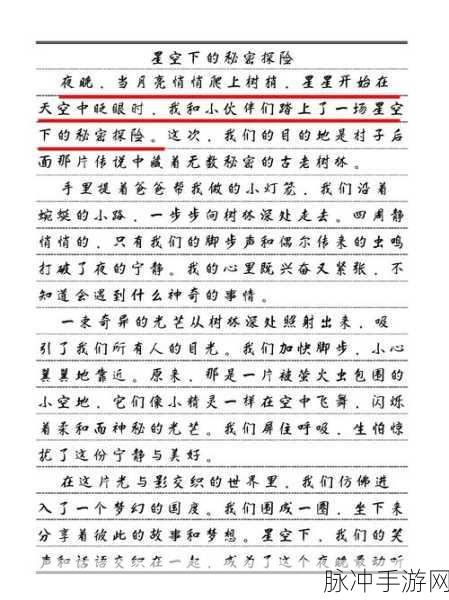 星空下的秘密探险
夜晚，当月亮悄悄爬上树梢，星星开始在
天空中眨眼时，我和小伙伴们踏上了一场星空
下的秘密探险。这次，我们的目的地是村子后
面那片传说中藏着无数秘密的古老树林。
手里提着爸爸帮我做的小灯笼，我们沿着
蜿蜒的小路，一步步向树林深处走去。四周静
悄悄的，只有我们的脚步声和偶尔传来的虫鸣
打破了夜的宁静。我的心里既兴奋又紧张，不
知道会遇到什么神奇的事情。
一束奇异的光芒从树林深处照射出来，吸
引了我们所有人的目光。我们加快脚步，小心
翼翼地靠近。原来，那是一片被萤火虫包围的
小空地，它们像小精灵一样在空中飞舞，闪烁
着柔和而神秘的光芒。我们屏住呼吸，生怕惊
扰了这份宁静与美好。
在这片光与影交织的世界里，我们仿佛进
入了一个梦幻的国度。我们围成一圈，坐下来
分享着彼此的故事和梦想。星空下，我们的笑
声和话语交织在一起，成为了这个夜晚最动听
脉冲手游网